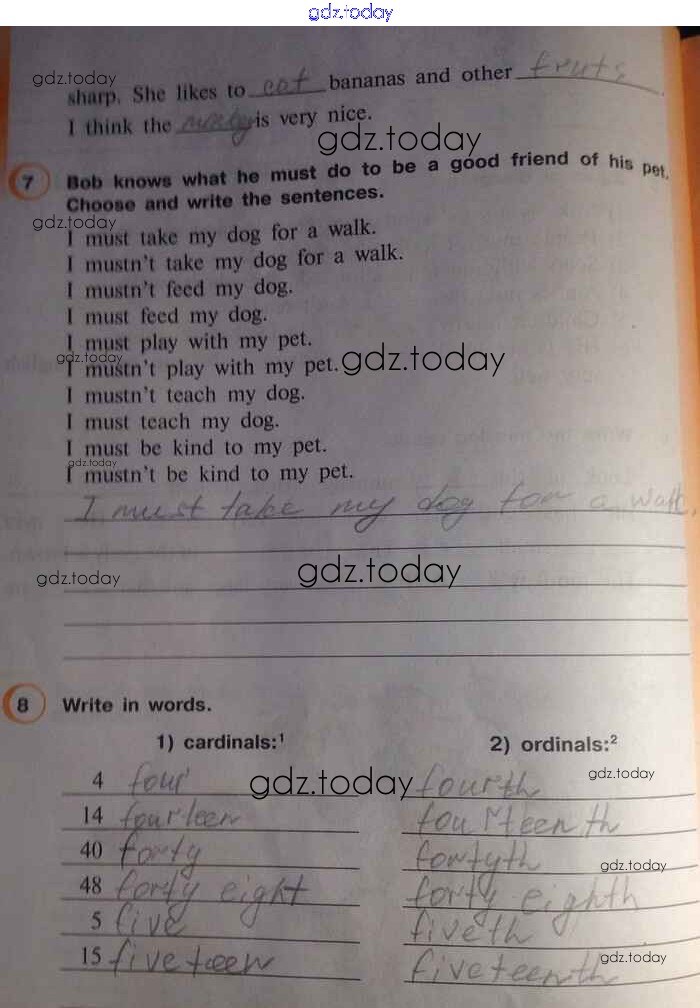 gdz.today
gdz.today
sharp. She likes to eat bananas and other fruts.
I think the is very nice.
gdz.today
7 Bob knows what he must do to be a good friend of his pet.
Choose and write the sentences.
gdz.today
I must take my dog for a walk.
I mustn't take my dog for a walk.
I mustn't feed my dog.
I must feed my dog.
I must play with my pet.
gdz.today
I mustn't play with my pet.
gdz.today
I mustn't teach my dog.
I must teach my dog.
I must be kind to my pet.
gdz.today
I mustn't be kind to my pet.
I must take my dog for a walk.
gdz.today
gdz.today
8 Write in words.
1) cardinals:¹ 2) ordinals:²
gdz.today
4 four fourth
gdz.today
14 fourteen fourteenth
40 forty fortyth
gdz.today
48 forty eight forty eighth
5 five fiveth
15 fiveteen fiveteenth
gdz.today